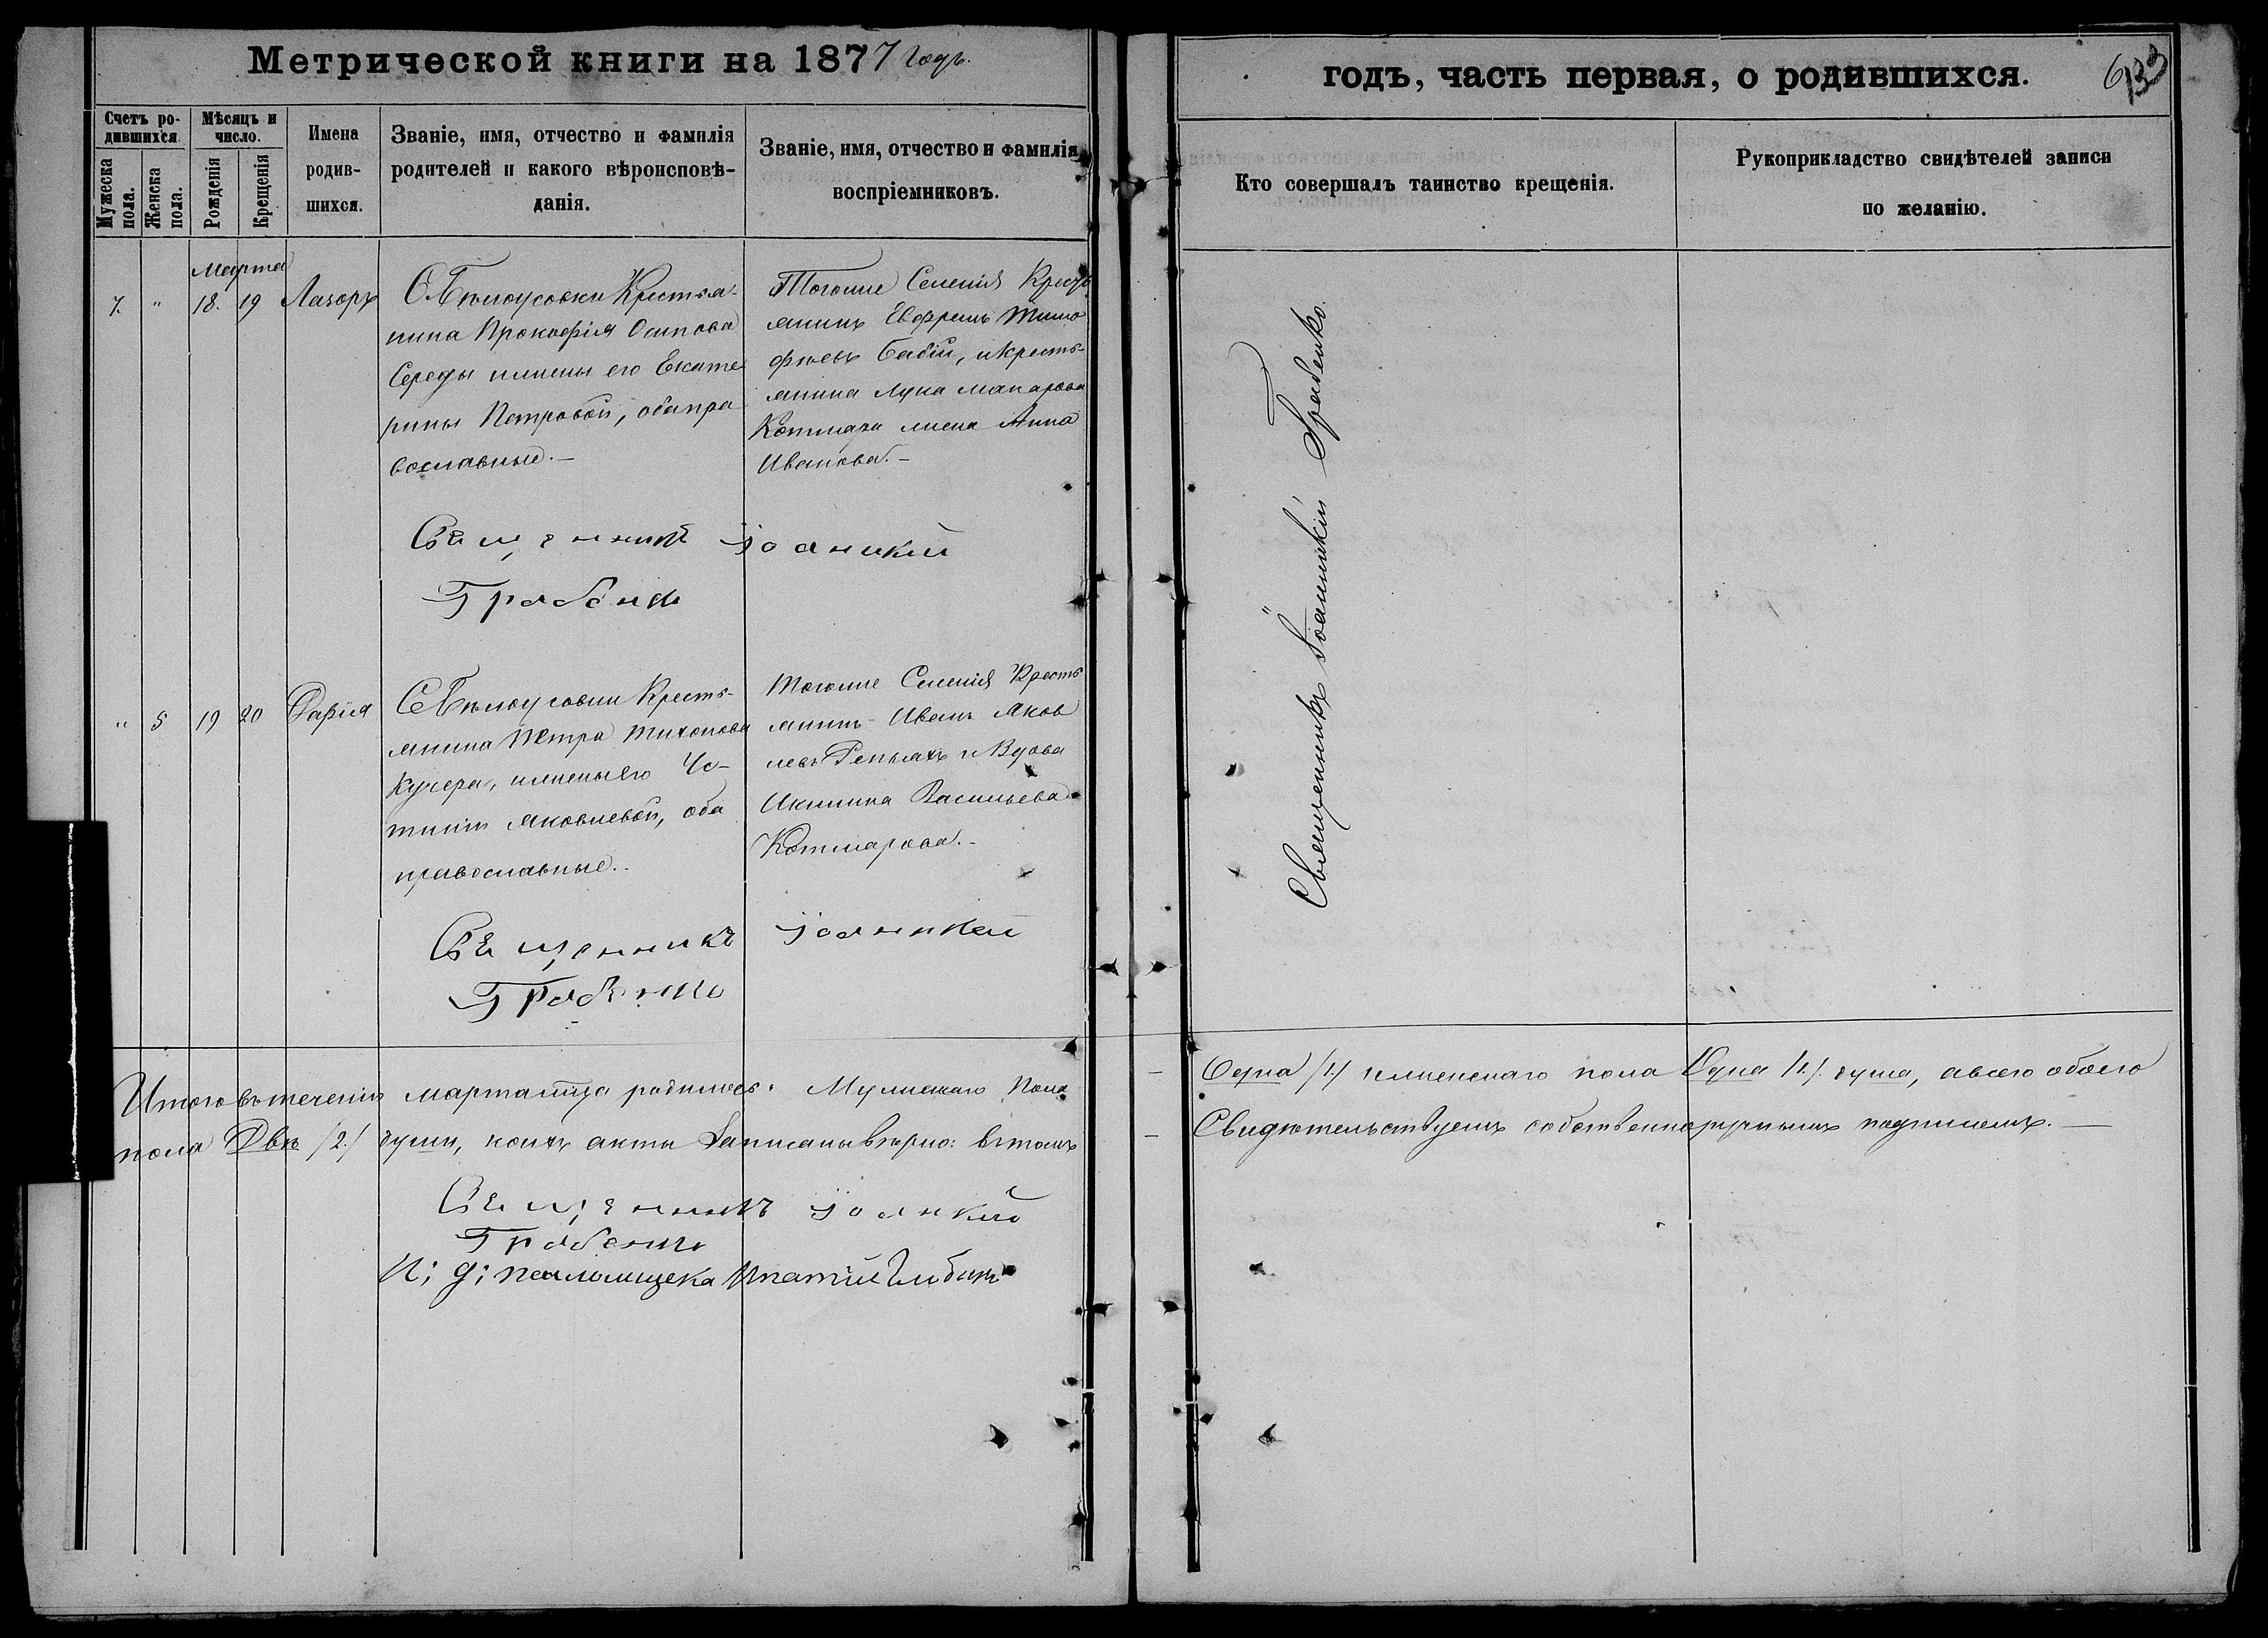 Метрической книги на 1877 годъ.
годъ, часть первая, о родившихся.
Счетъ родившихся.
Мужеска пола.
Женска пола.
Мѣсяцъ и число.
Рожденія
Крещенія
Имена родившихся.
Званіе, имя, отчество и фамилія
родителей и какого вѣроисповѣ-
данія.
Званіе, имя, отчество и фамилія
воспріемниковъ.
Кто совершалъ таинство крещенія.
Рукоприкладство свидѣтелей записи
по желанію.
Марта
7. " 18. 19 Лазоръ
С. Бѣлоусовки Крестья-
нина Прокофія Осипова
Середы и жены его Екате
рины Петровой, оба пра
вославные.—
Тогоже Селенія Кресть
янинъ Евфремъ Тимо
фѣевъ Бабій, и кресть-
янина Лука Макарова
Котляра жена Анна
Иванова.—
Священникъ Іоанникій
Грабенко
" 5 19 20 Дарія
С. Бѣлоусовки Кресть-
янина Петра Тихонова
Кучера, и жены его
Яковлевой, оба
православные.-
Тогоже Селенія Кресть
янинъ Иванъ Яков
левъ Репьяхъ и Вдова
Акилина Васильева
Котлярова.-
Священникъ Іоанникій
Грабенко
Священникъ Іоанникій Грабенко.
Итого въ теченіи марта м-ца родилось: Мужескаго Пола
— Одна /1/ женскаго пола Одна /1/. душа, а всего обоего
пола Двѣ /2./ души, коихъ акты Записаны вѣрно: въ томъ
— Свидѣтельствуемъ собственноручнымъ подписомъ.—
Священникъ Іоанникій
Грабенко
И; д; псаломщека Ипатій